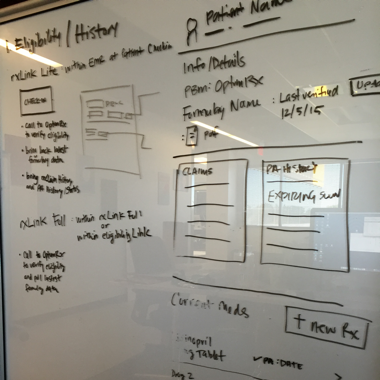 1. Eligibility / History
rxLink Lite: within EMR at Patient Checkin
CHECKIN
- Call to OptumRx
to verify eligibility
- bring back latest
formulary data
- bring claims history
and PA History/Status
rxLink Full: within rxLink Full
or
within eligibility Link
- Call to OptumRx
to verify eligibility
and pull latest
formulary data
Patient Name
Info/Details
PBM: OptumRx
Formulary Name : Last verified
12/5/15
PDF
CLAIMS
PA-History
EXPIRING SOON
Current meds
+ New Rx
Tablet
✓PA:DATE